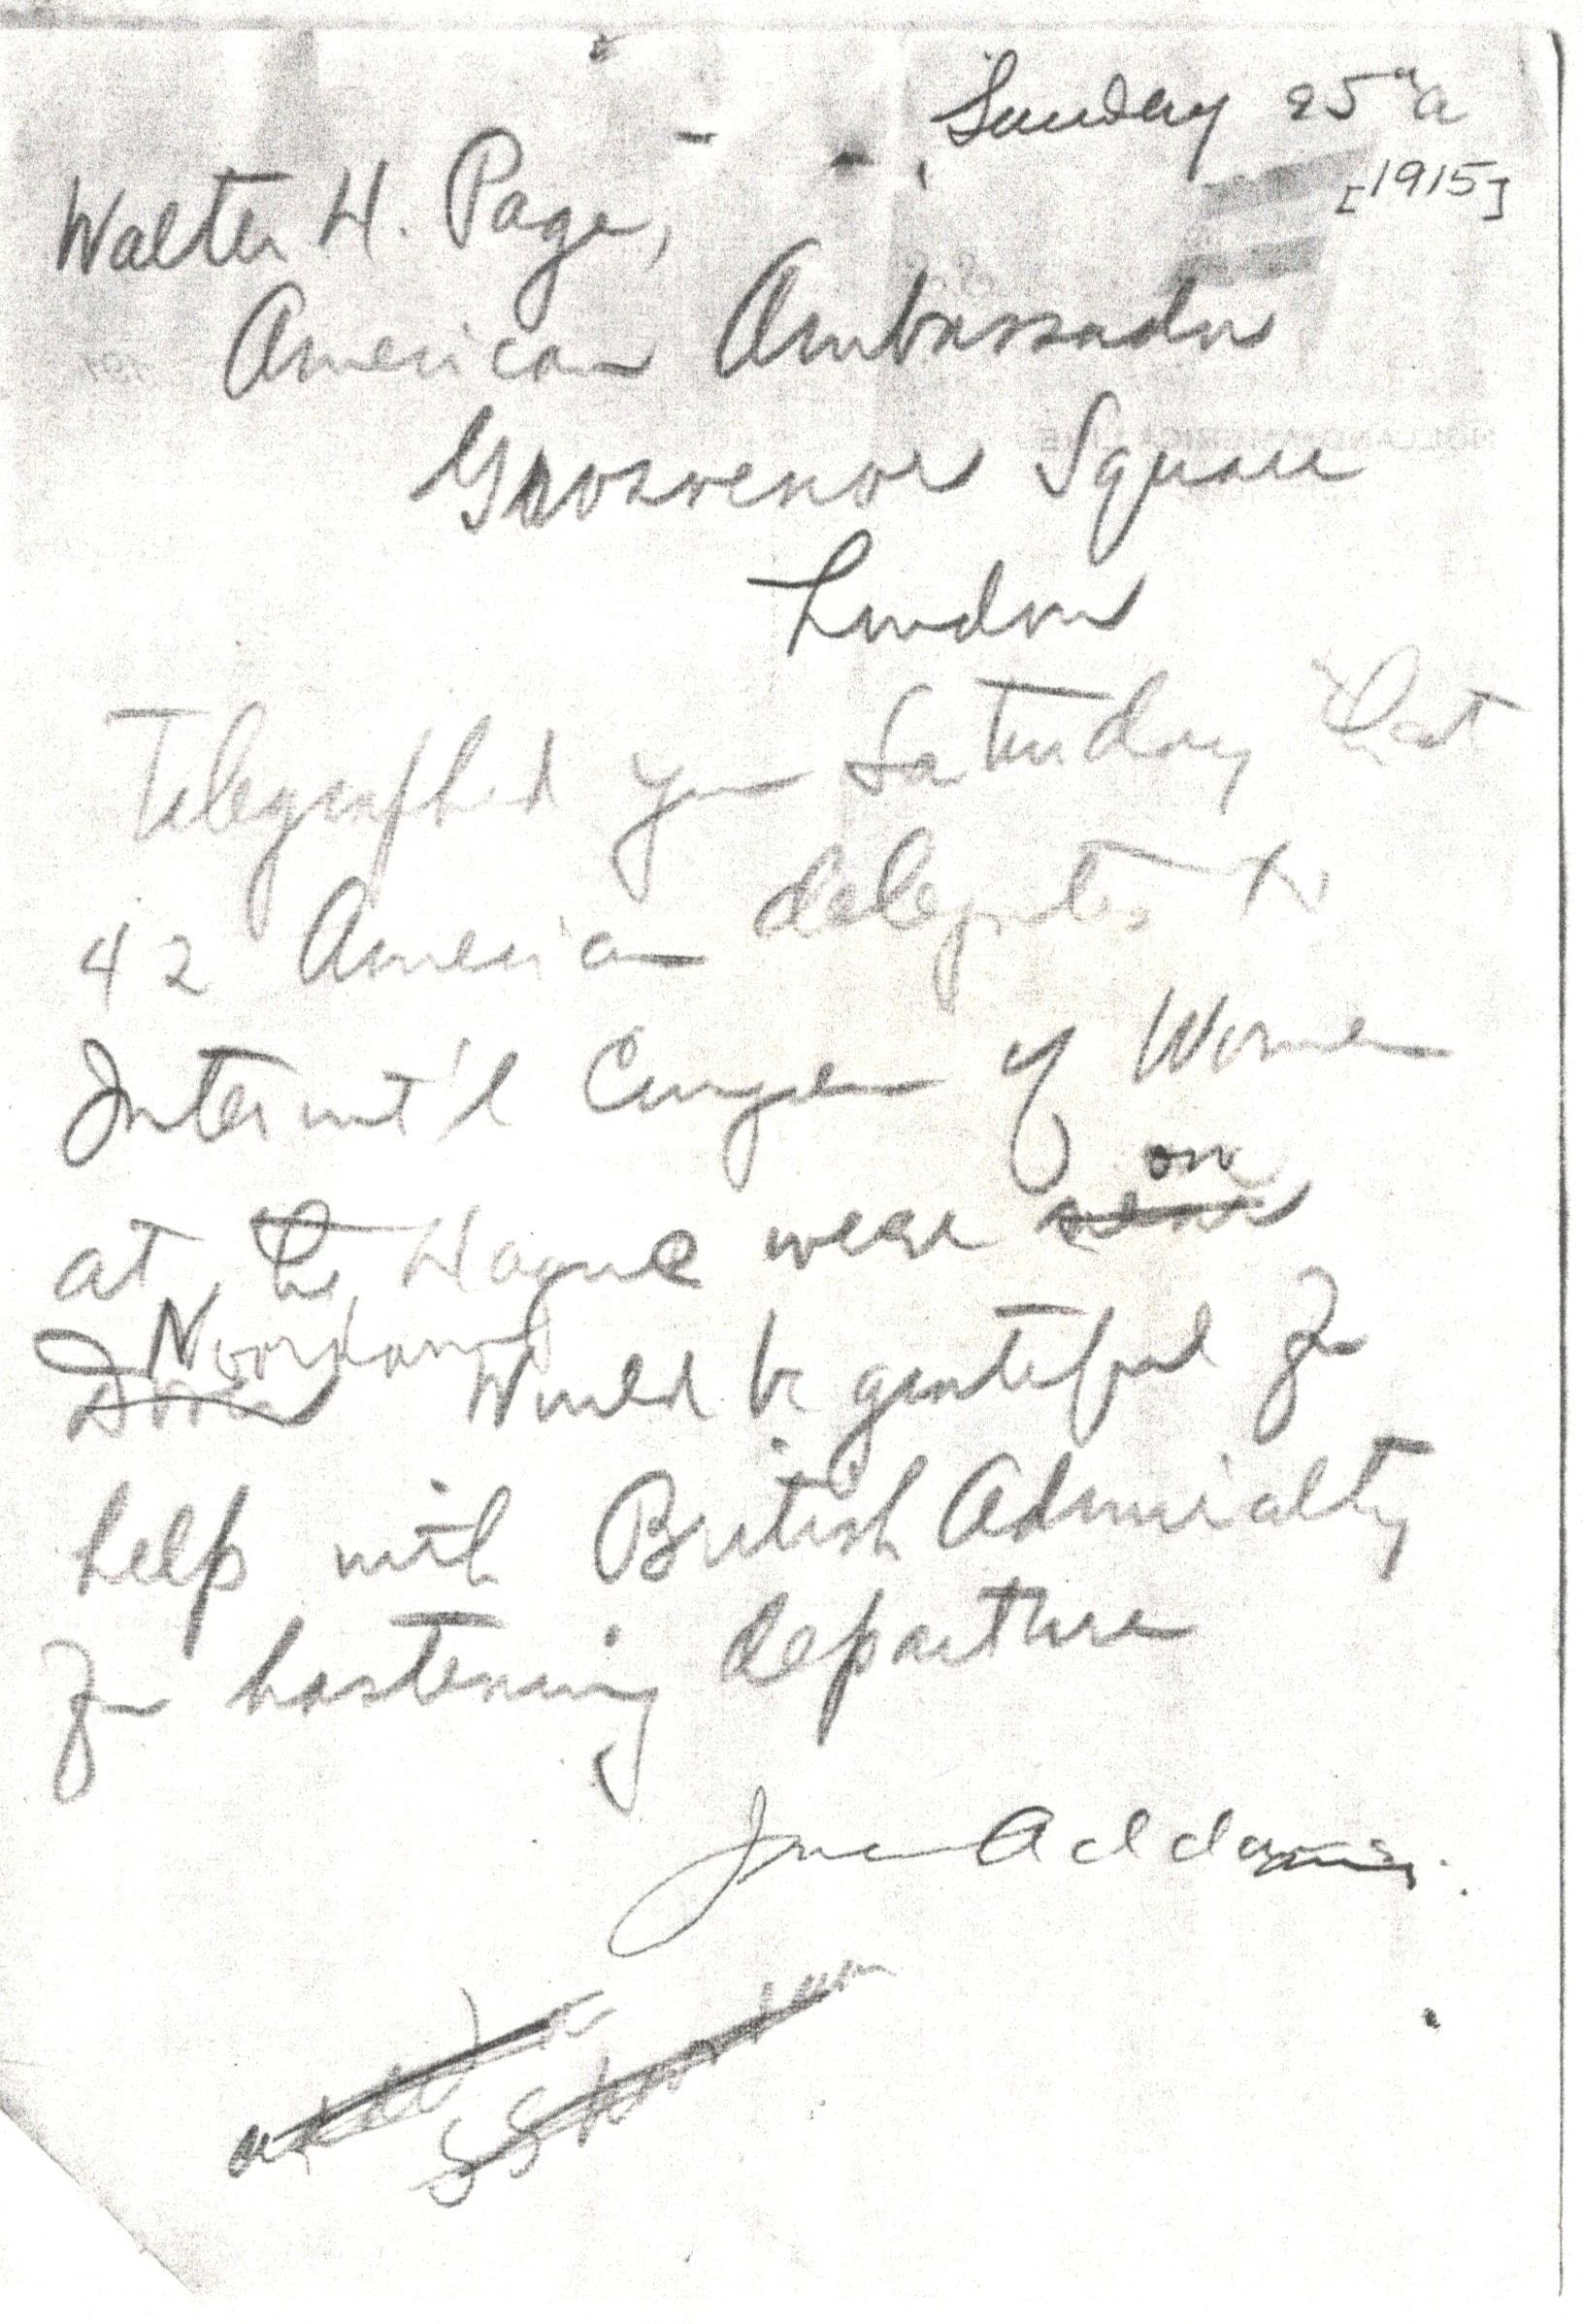 Sunday 25" a
[1915]
Walter H. Page,
American Ambassador
Grosvenor Square
London
Telegraphed you Saturday that
42 American delegates to
Internat'l Congress of Women
at the Hague were on
Noordam Would be grateful for
help with British Admiralty
for hastening departure
Jane Addams.
SS Noordam